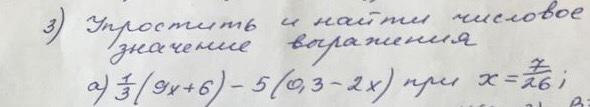 3) Упростить и найти числовое
значение выражения
а) 1/3 (9х+6) - 5 (0,3-2х) при х = 7/26;